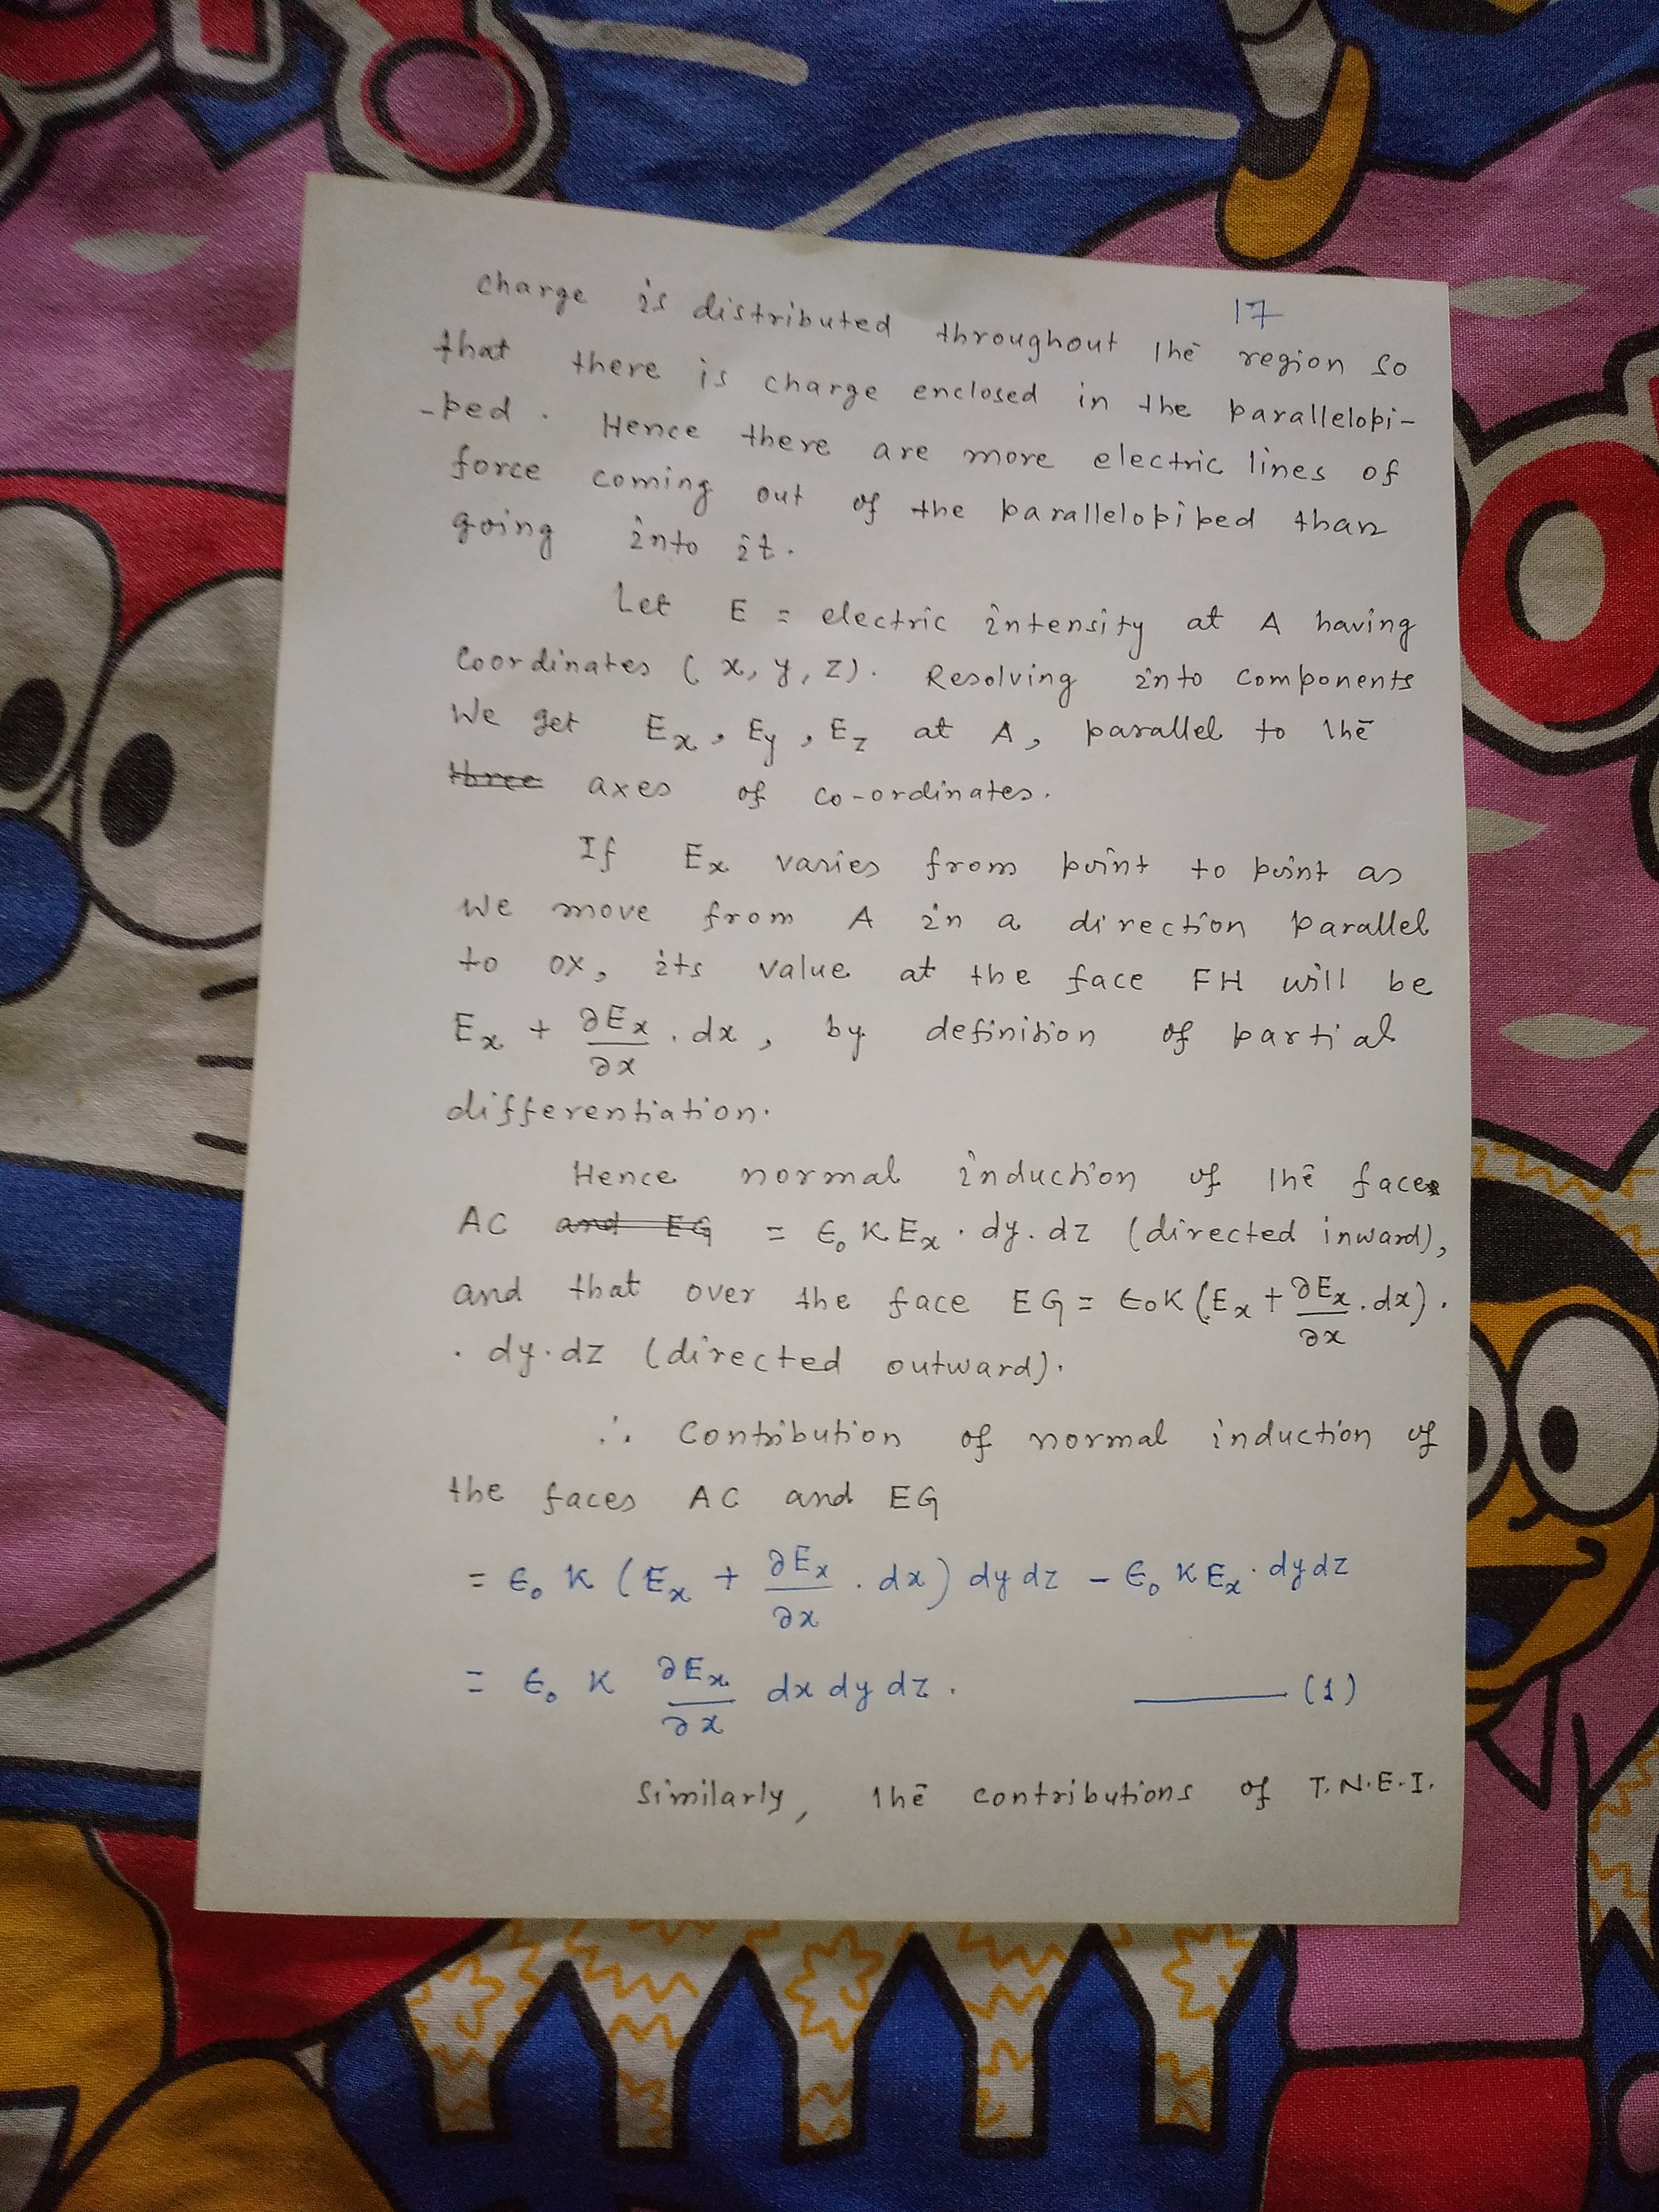 17
charge is distributed throughout the region so
that there is charge enclosed in the parallelopi-
-ped. Hence there are more electric lines of
force coming out of the parallelopiped than
going into it.
Let E = electric intensity at A having
Coordinates (x, y, z). Resolving into components
We get Ex, Ey, Ez at A, parallel to the
three axes of co-ordinates.
If Ex varies from point to point as
we move from A in a direction parallel
to OX, its value at the face FH will be
Ex + ∂Ex/∂x . dx, by definition of partial
differentiation.
Hence normal induction of the face
AC and EG = ϵ₀ K Ex . dy. dz (directed inward),
and that over the face EG = ϵ₀K (Ex + ∂Ex/∂x . dx) .
. dy. dz (directed outward).
∴ Contribution of normal induction of
the faces AC and EG
= ϵ₀ K (Ex + ∂Ex/∂x . dx) dy dz - ϵ₀ K Ex . dy dz
= ϵ₀ K ∂Ex/∂x dx dy dz. ——— (1)
Similarly, the contributions of T.N.E.I.